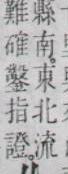 縣南。東北流
難確鑿指證。